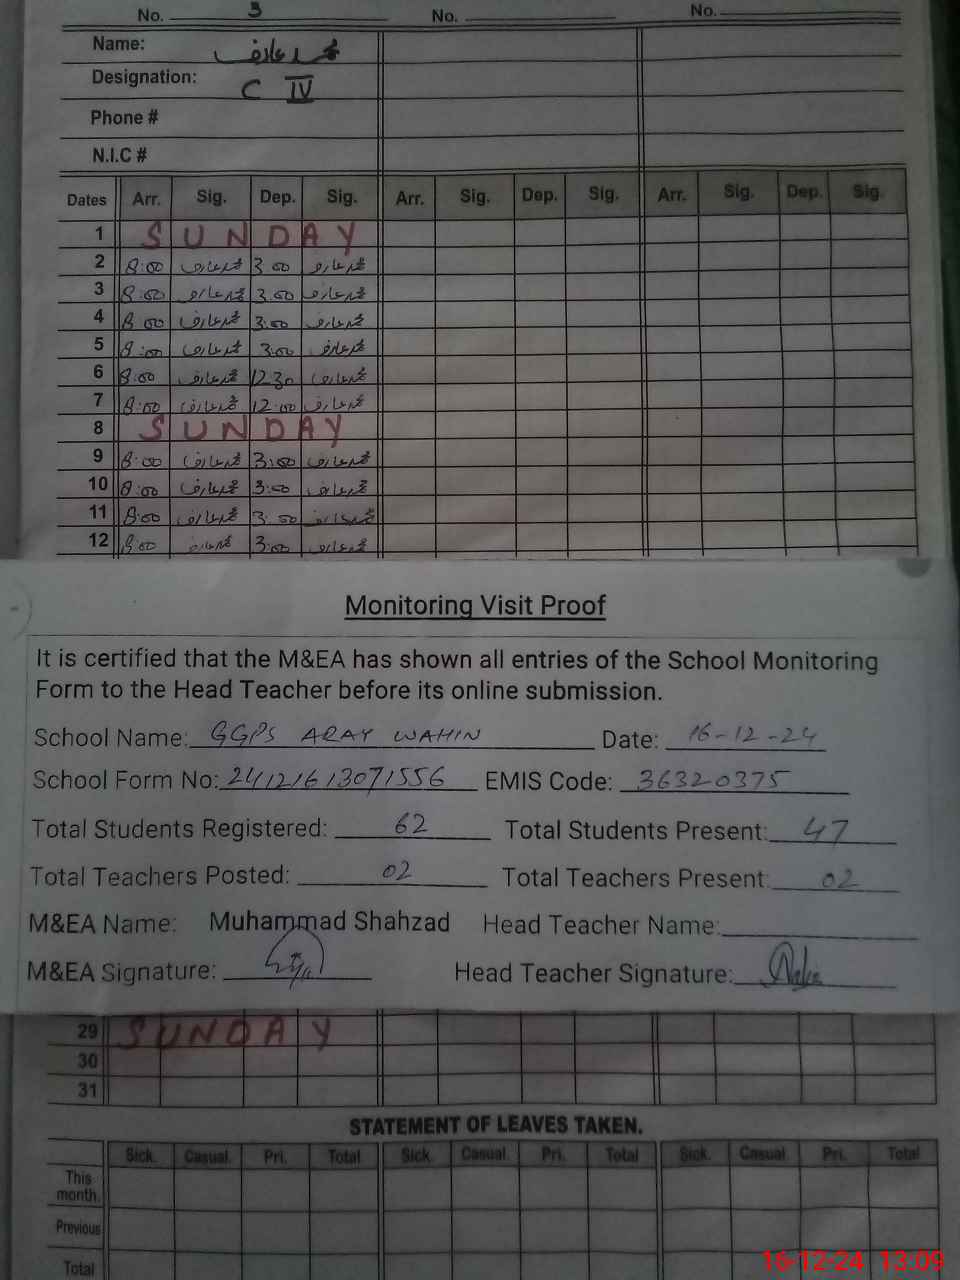 No. 3 No. No.
Name: محمد عارف
Designation: C IV
Phone #
N.I.C #
Dates Arr. Sig. Dep. Sig. Arr. Sig. Dep. Sig. Arr. Sig. Dep. Sig.
1 SUNDAY
2 8:00 محمد عارف 3 00 محمد عارف
3 8:00 محمد عارف 3.00 محمد عارف
4 8 00 محمد عارف 3:00 محمد عارف
5 8:00 محمد عارف 3:00 محمد عارف
6 8:00 محمد عارف 12 30 محمد عارف
7 8:00 محمد عارف 12:00 محمد عارف
8 SUNDAY
9 8:00 محمد عارف 3:00 محمد عارف
10 8:00 محمد عارف 3:00 محمد عارف
11 8:00 محمد عارف 3:00 محمد عارف
12 8:00 محمد عارف 3:00 محمد عارف
Monitoring Visit Proof
It is certified that the M&EA has shown all entries of the School Monitoring
Form to the Head Teacher before its online submission.
School Name: GGPS ARAY WAHIN Date: 16-12-24
School Form No: 24121613071556 EMIS Code: 36320375
Total Students Registered: 62 Total Students Present: 47
Total Teachers Posted: 02 Total Teachers Present: 02
M&EA Name: Muhammad Shahzad Head Teacher Name:
M&EA Signature: Head Teacher Signature:
29 SUNDAY
30
31
STATEMENT OF LEAVES TAKEN.
Sick. Casual. Pri. Total Sick. Casual. Pri. Total Sick. Casual Pri. Total
This
month.
Previous
Total
16-12-24 13:09